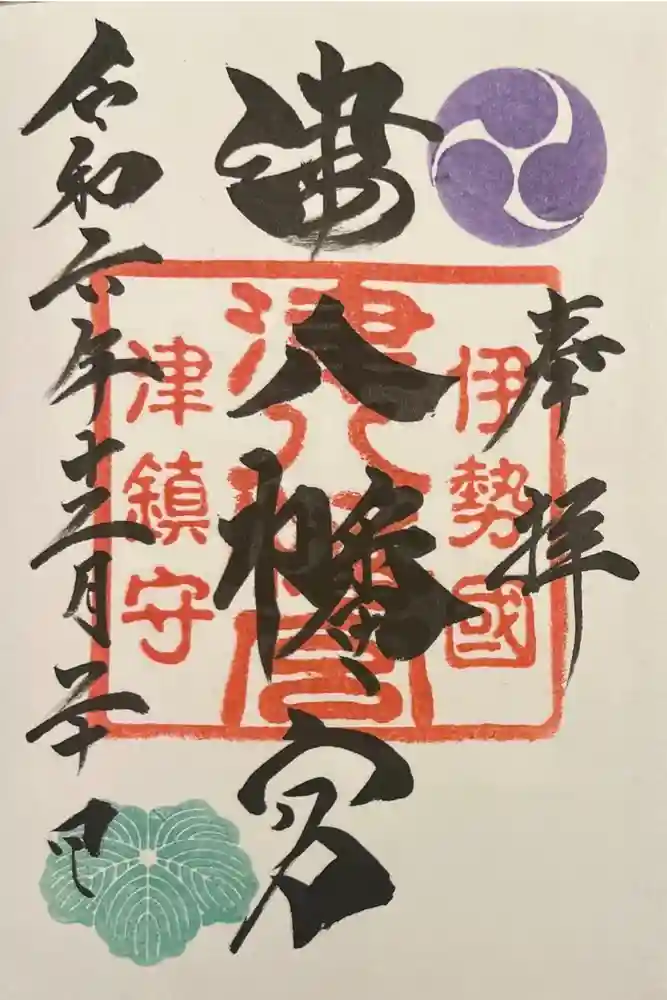 奉拝
伊勢國
津八幡宮
津八幡宮
津鎮守
令和六年十二月
日